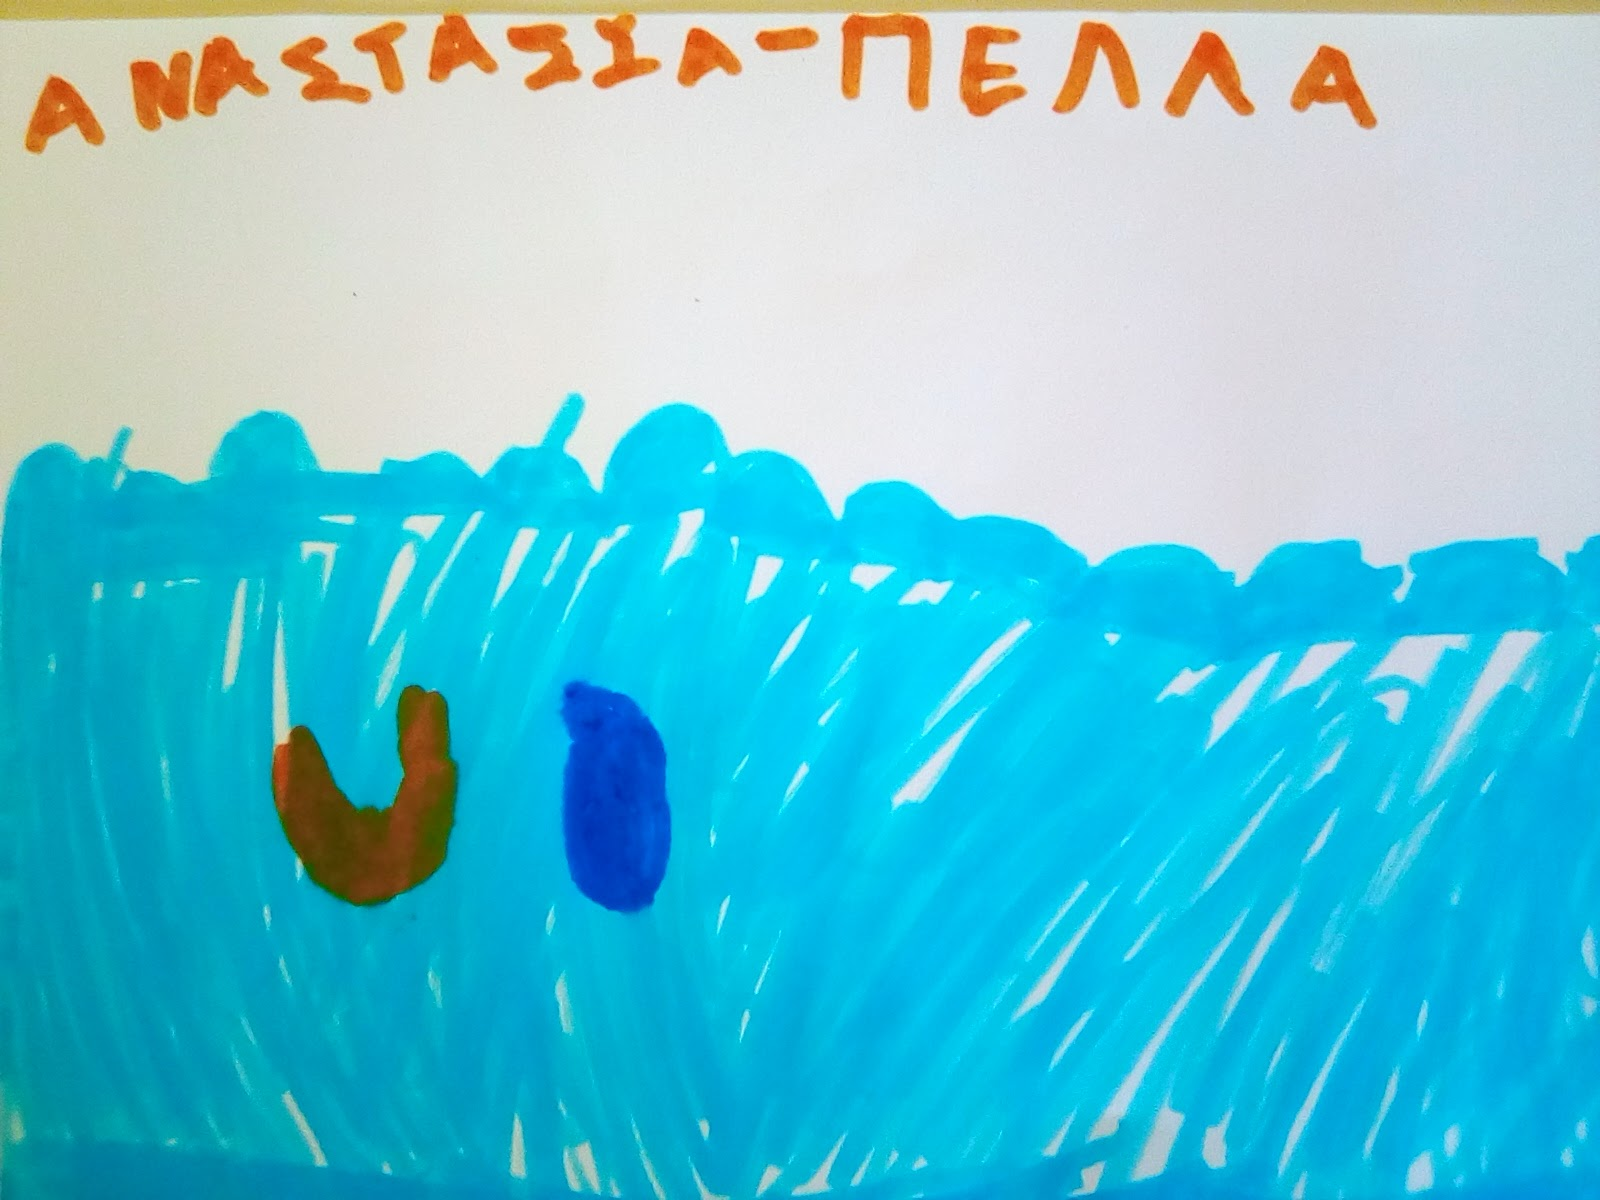 ΑΝΑΣΤΑΣΙΑ-ΠΕΛΛΑ